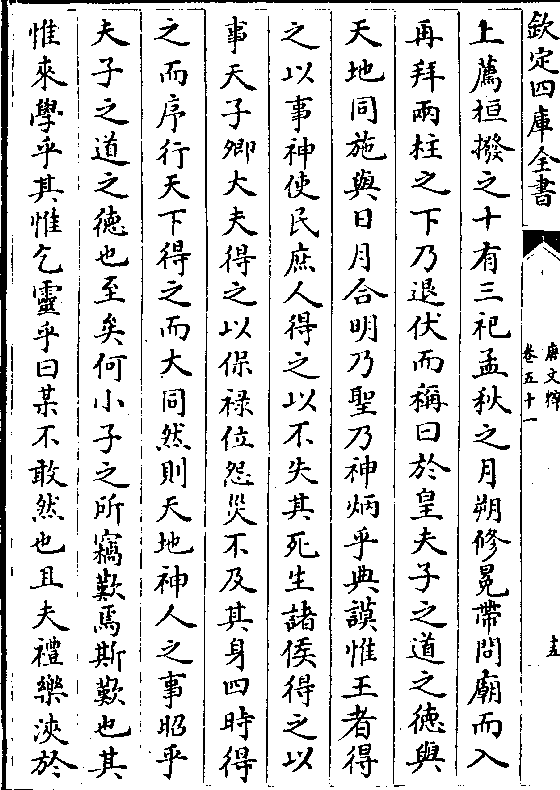 欽定四庫全書
唐文粹
卷五十一
上薦桓撥之十有三祀孟秋之月朔修冕帶問廟而入
再拜兩柱之下乃退伏而稱曰於皇夫子之道之德與
天地同施與日月合明乃聖乃神炳乎典謨惟王者得
之以事神使民庶人得之以不失其死生諸侯得之以
事天子卿大夫得之以保禄位怨災不及其身四時得
之而序行天下得之而大同然則天地神人之事昭乎
夫子之道之徳也至矣何小子之所竊歎焉斯歎也其
惟來學乎其惟乞靈乎曰某不敢然也且夫禮樂浹於